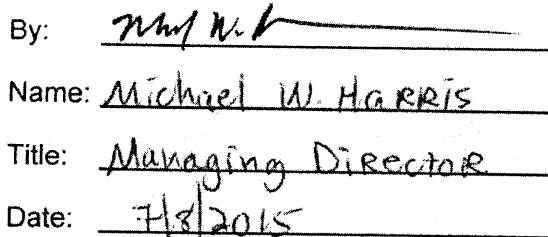 By:
Name: Michael W. Harris
Title: Managing Director
Date: 7/8/2015